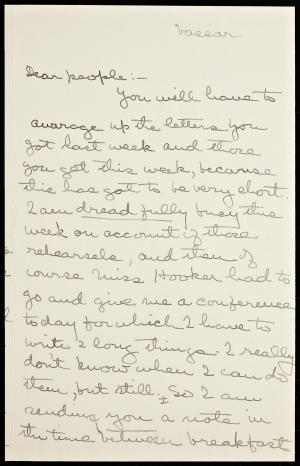 Vassar
Dear people:—
You will have to
avarage up the letters you
got last week and those
you get this week, because
this has got to be very short.
I am dreadfully busy this
week on account of those
rehearsels, and then of
course Miss Hooker had to
go and give me a conference
today for which I have to
write 2 long things. I really
don't know when I can do
them, but still; So I am
sending you a note in
the time between breakfast